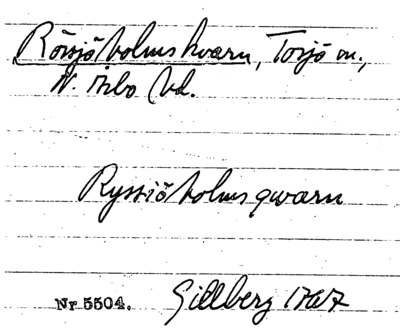 Rörsjöholms kvarn, Tosjö sn.,
N. Åsbo hd.
Ryssiöholms qwarn
Nr 5504. Gillberg 1767